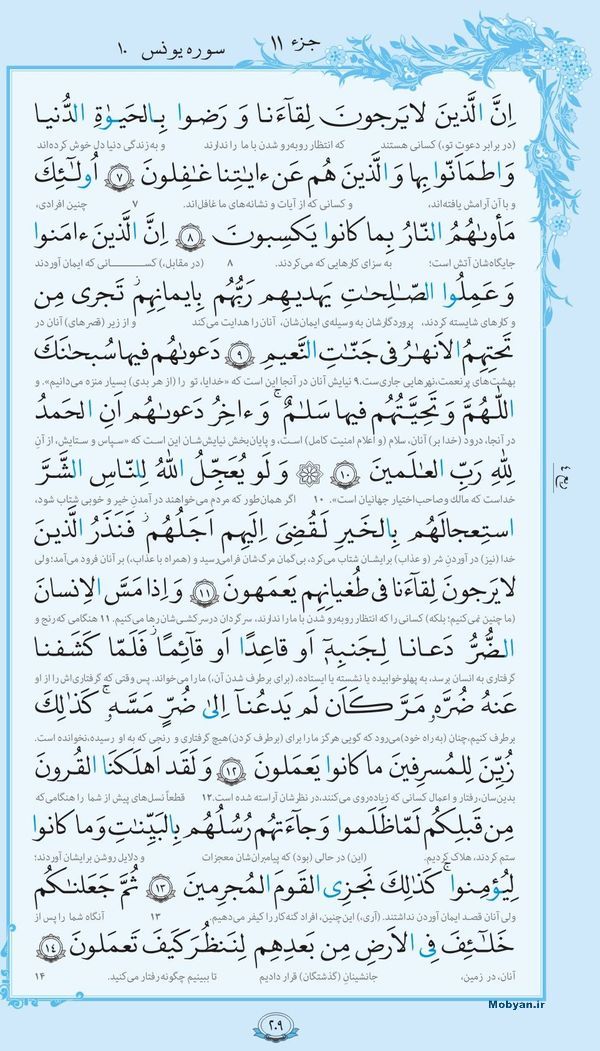 جزء ۱۱
سوره یونس ۱۰
اِنَّ الَّذینَ لایَرجونَ لِقاءَنا وَ رَضوا بِالحَیوٰةِ الدُّنیا
(در برابر دعوت تو،) کسانی هستند که انتظار روبه‌رو شدن با ما را ندارند و به زندگی دنیا دل خوش کرده‌اند
وَاطمَاَنّوا بِها وَالَّذینَ هُم عَن ءایٰتِنا غٰفِلونَ ﴿۷﴾ اُولٰئِکَ
و با آن آرامش یافته‌اند، و کسانی که از آیات و نشانه‌های ما غافل‌اند. ۷ چنین افرادی،
مَأوىٰهُمُ النّارُ بِما کانوا یَکسِبونَ ﴿۸﴾ اِنَّ الَّذینَ ءامَنوا
جایگاهشان آتش است؛ به سزای کارهایی که می‌کردند. ۸ (در مقابل،) کسانی که ایمان آوردند
وَ عَمِلُوا الصّٰلِحٰتِ یَهدیهِم رَبُّهُم بِایمانِهِم تَجری مِن
و کارهای شایسته کردند، پروردگارشان به وسیله‌ی ایمان‌شان، آنان را هدایت می‌کند و از زیر (قصرهای) آنان در
تَحتِهِمُ الاَنهٰرُ فی جَنّٰتِ النَّعیمِ ﴿۹﴾ دَعوىٰهُم فیها سُبحٰنَکَ
بهشت‌های پرنعمت، نهرهایی جاری‌ست. ۹ نیایش آنان در آنجا این است که «خدایا، تو را (از هر بدی) بسیار منزه می‌دانیم». و
اللّٰهُمَّ وَ تَحِیَّتُهُم فیها سَلٰمٌ وَ ءاخِرُ دَعوىٰهُم اَنِ الحَمدُ
در آنجا، درود (خدا بر) آنان، سلام (و اعلام امنیت کامل) است، و پایان‌بخش نیایش‌شان این است که «سپاس و ستایش، از آنِ
لِلّٰهِ رَبِّ العٰلَمینَ ﴿۱۰﴾ وَ لَو یُعَجِّلُ اللّٰهُ لِلنّاسِ الشَّرَّ
خداست که مالک و صاحب‌اختیار جهانیان است». ۱۰ اگر همان‌طور که مردم می‌خواهند در آمدنِ خیر و خوبی شتاب شود،
استِعجالَهُم بِالخَیرِ لَقُضِیَ اِلَیهِم اَجَلُهُم فَنَذَرُ الَّذینَ
خدا (نیز) در آوردن شر (و عذاب) برایشان شتاب می‌کرد، بی‌گمان مرگ‌شان فرامی‌رسید و (همراه با عذاب،) بر آنان فرود می‌آمد؛ ولی
لایَرجونَ لِقاءَنا فی طُغیٰنِهِم یَعمَهونَ ﴿۱۱﴾ وَ اِذا مَسَّ الاِنسانَ
(ما چنین نمی‌کنیم؛ بلکه) کسانی را که انتظار روبه‌رو شدن با ما را ندارند، سرگردان در سرکشی‌شان رها می‌کنیم. ۱۱ هنگامی که رنج و
الضُّرُّ دَعانا لِجَنبِهٖ اَو قاعِدًا اَو قائِمًا فَلَمّا کَشَفنا
گرفتاری به انسان برسد، به پهلو خوابیده یا نشسته یا ایستاده، (برای برطرف شدن آن،) ما را می‌خواند. پس وقتی که گرفتاری‌اش را از او
عَنهُ ضُرَّهٗ مَرَّ کَاَن لَم یَدعُنا اِلىٰ ضُرٍّ مَسَّهٗ کَذٰلِکَ
برطرف کنیم، چنان (به راه خود) می‌رود که گویی هرگز ما را برای (برطرف کردن) هیچ گرفتاری و رنجی که به او رسیده، نخوانده است.
زُیِّنَ لِلمُسرِفینَ ما کانوا یَعمَلونَ ﴿۱۲﴾ وَ لَقَد اَهلَکنَا القُرونَ
بدین‌سان، رفتار و اعمال کسانی که زیاده‌روی می‌کنند، در نظرشان آراسته شده است. ۱۲ قطعاً نسل‌های پیش از شما را هنگامی که
مِن قَبلِکُم لَمّا ظَلَموا وَ جاءَتهُم رُسُلُهُم بِالبَیِّنٰتِ وَ ما کانوا
ستم کردند، هلاک کردیم. (این) در حالی (بود) که پیامبران‌شان معجزات و دلایل روشن برایشان آوردند؛
لِیُؤمِنوا کَذٰلِکَ نَجزِی القَومَ المُجرِمینَ ﴿۱۳﴾ ثُمَّ جَعَلنٰکُم
ولی آنان قصد ایمان آوردن نداشتند. (آری،) این‌چنین، افراد گنه‌کار را کیفر می‌دهیم. ۱۳ آنگاه شما را پس از
خَلٰئِفَ فِی الاَرضِ مِن بَعدِهِم لِنَنظُرَ کَیفَ تَعمَلونَ ﴿۱۴﴾
آنان، در زمین، جانشینانِ (گذشتگان) قرار دادیم تا ببینیم چگونه رفتار می‌کنید. ۱۴
Mobyan.ir
۲۰۹